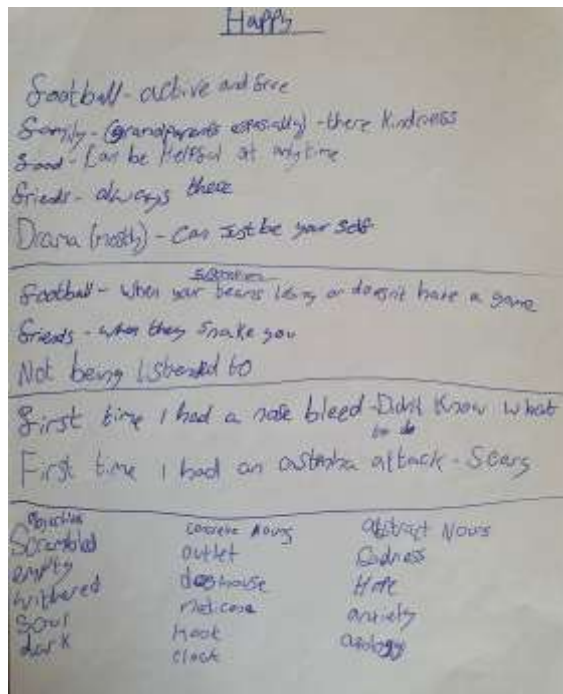 Happy
Football - active and free
Family - (grandparents especially) - there kindness
Food - Can be Helpful at anytime
friends - always there
Drama (mostly) - can just be your self
Football - when your teams losing or doesn't have a game
friends - when they snake you
Not being listened to
First time I had a nose bleed - Didn't know what
to do
First time I had an asthma attack - Scary
Scrambled
empty
withered
sour
dark
concrete Nouns
outlet
doghouse
Hook
clock
abstract Nouns
Sadness
Hope
anxiety